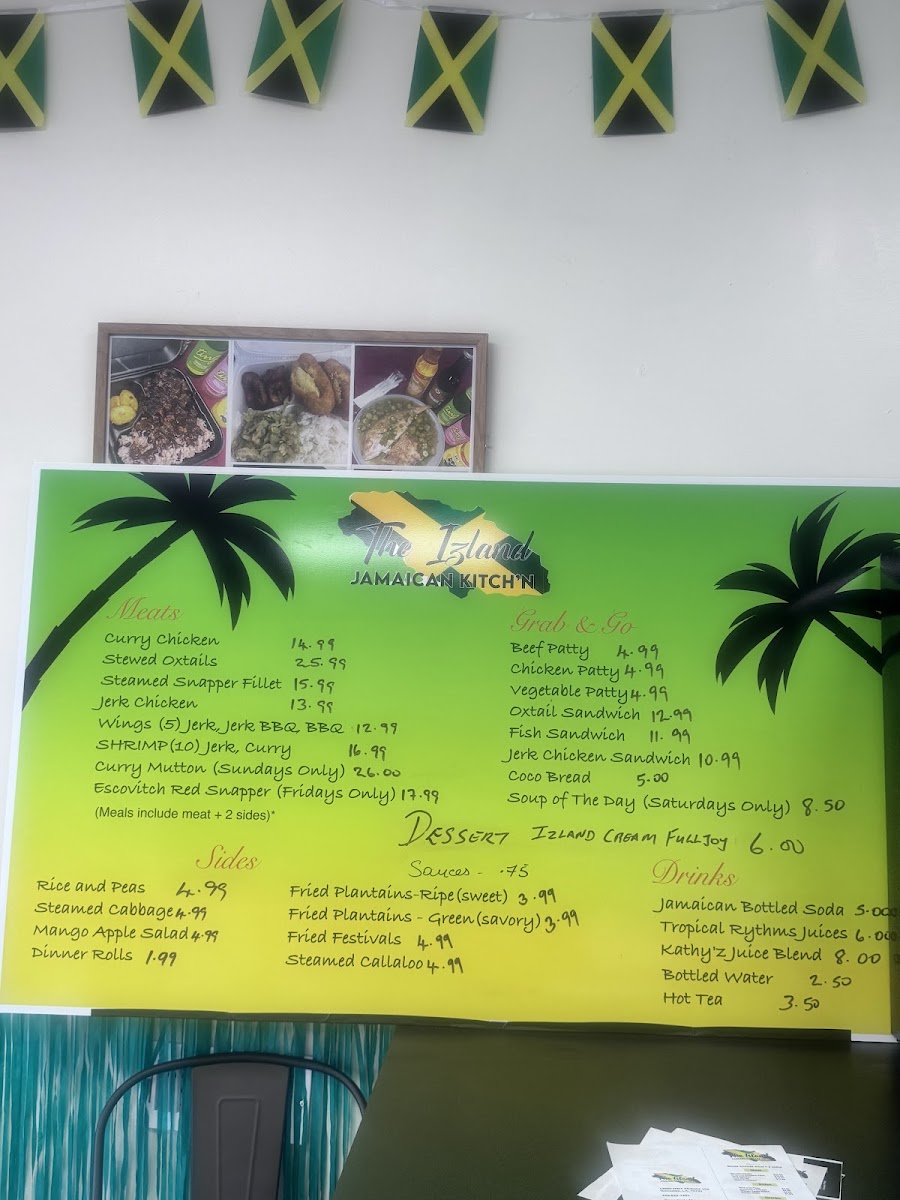 The Izland
JAMAICAN KITCH'N
Meats
Curry Chicken 14.99
Stewed Oxtails 25.99
Steamed Snapper Fillet 15.99
Jerk Chicken 13.99
Wings (5) Jerk, Jerk BBQ, BBQ 12.99
SHRIMP(10) Jerk, Curry 16.99
Curry Mutton (Sundays Only) 26.00
Escovitch Red Snapper (Fridays Only) 17.99
(Meals include meat + 2 sides)*
Grab & Go
Beef Patty 4.99
Chicken Patty 4.99
Vegetable Patty 4.99
Oxtail Sandwich 12.99
Fish Sandwich 11.99
Jerk Chicken Sandwich 10.99
Coco Bread 5.00
Soup of The Day (Saturdays Only) 8.50
DESSERT IZLAND CREAM FULLJOY 6.00
Sides
Rice and Peas 4.99
Steamed Cabbage 4.99
Mango Apple Salad 4.99
Dinner Rolls 1.99
Sauces - .75
Fried Plantains-Ripe (sweet) 3.99
Fried Plantains - Green (savory) 3.99
Fried Festivals 4.99
Steamed Callaloo 4.99
Drinks
Jamaican Bottled Soda 5.00
Tropical Rythms Juices 6.00
Kathy'z Juice Blend 8.00
Bottled Water 2.50
Hot Tea 3.50
The Izland